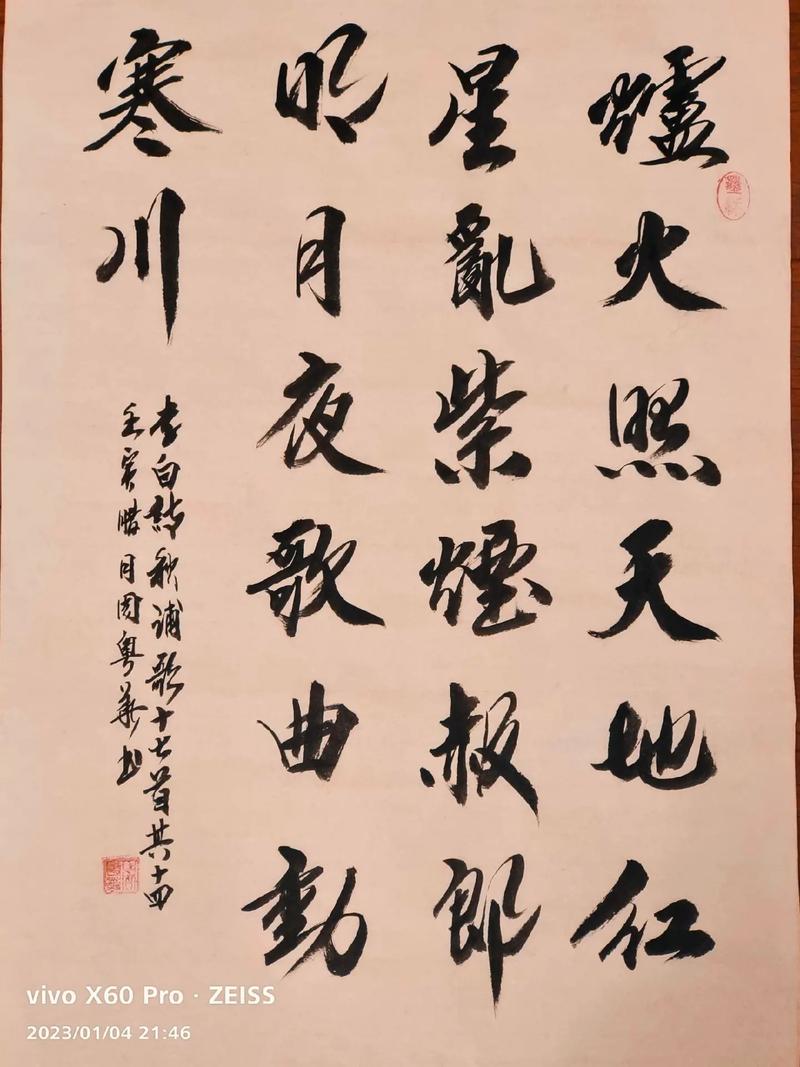 爐火照天地紅
星亂紫煙赧郎
明月夜歌曲動
寒川
李白詩秋浦歌十七首其十四
壬寅腊月周粤華书
vivo X60 Pro · ZEISS
2023/01/04 21:46